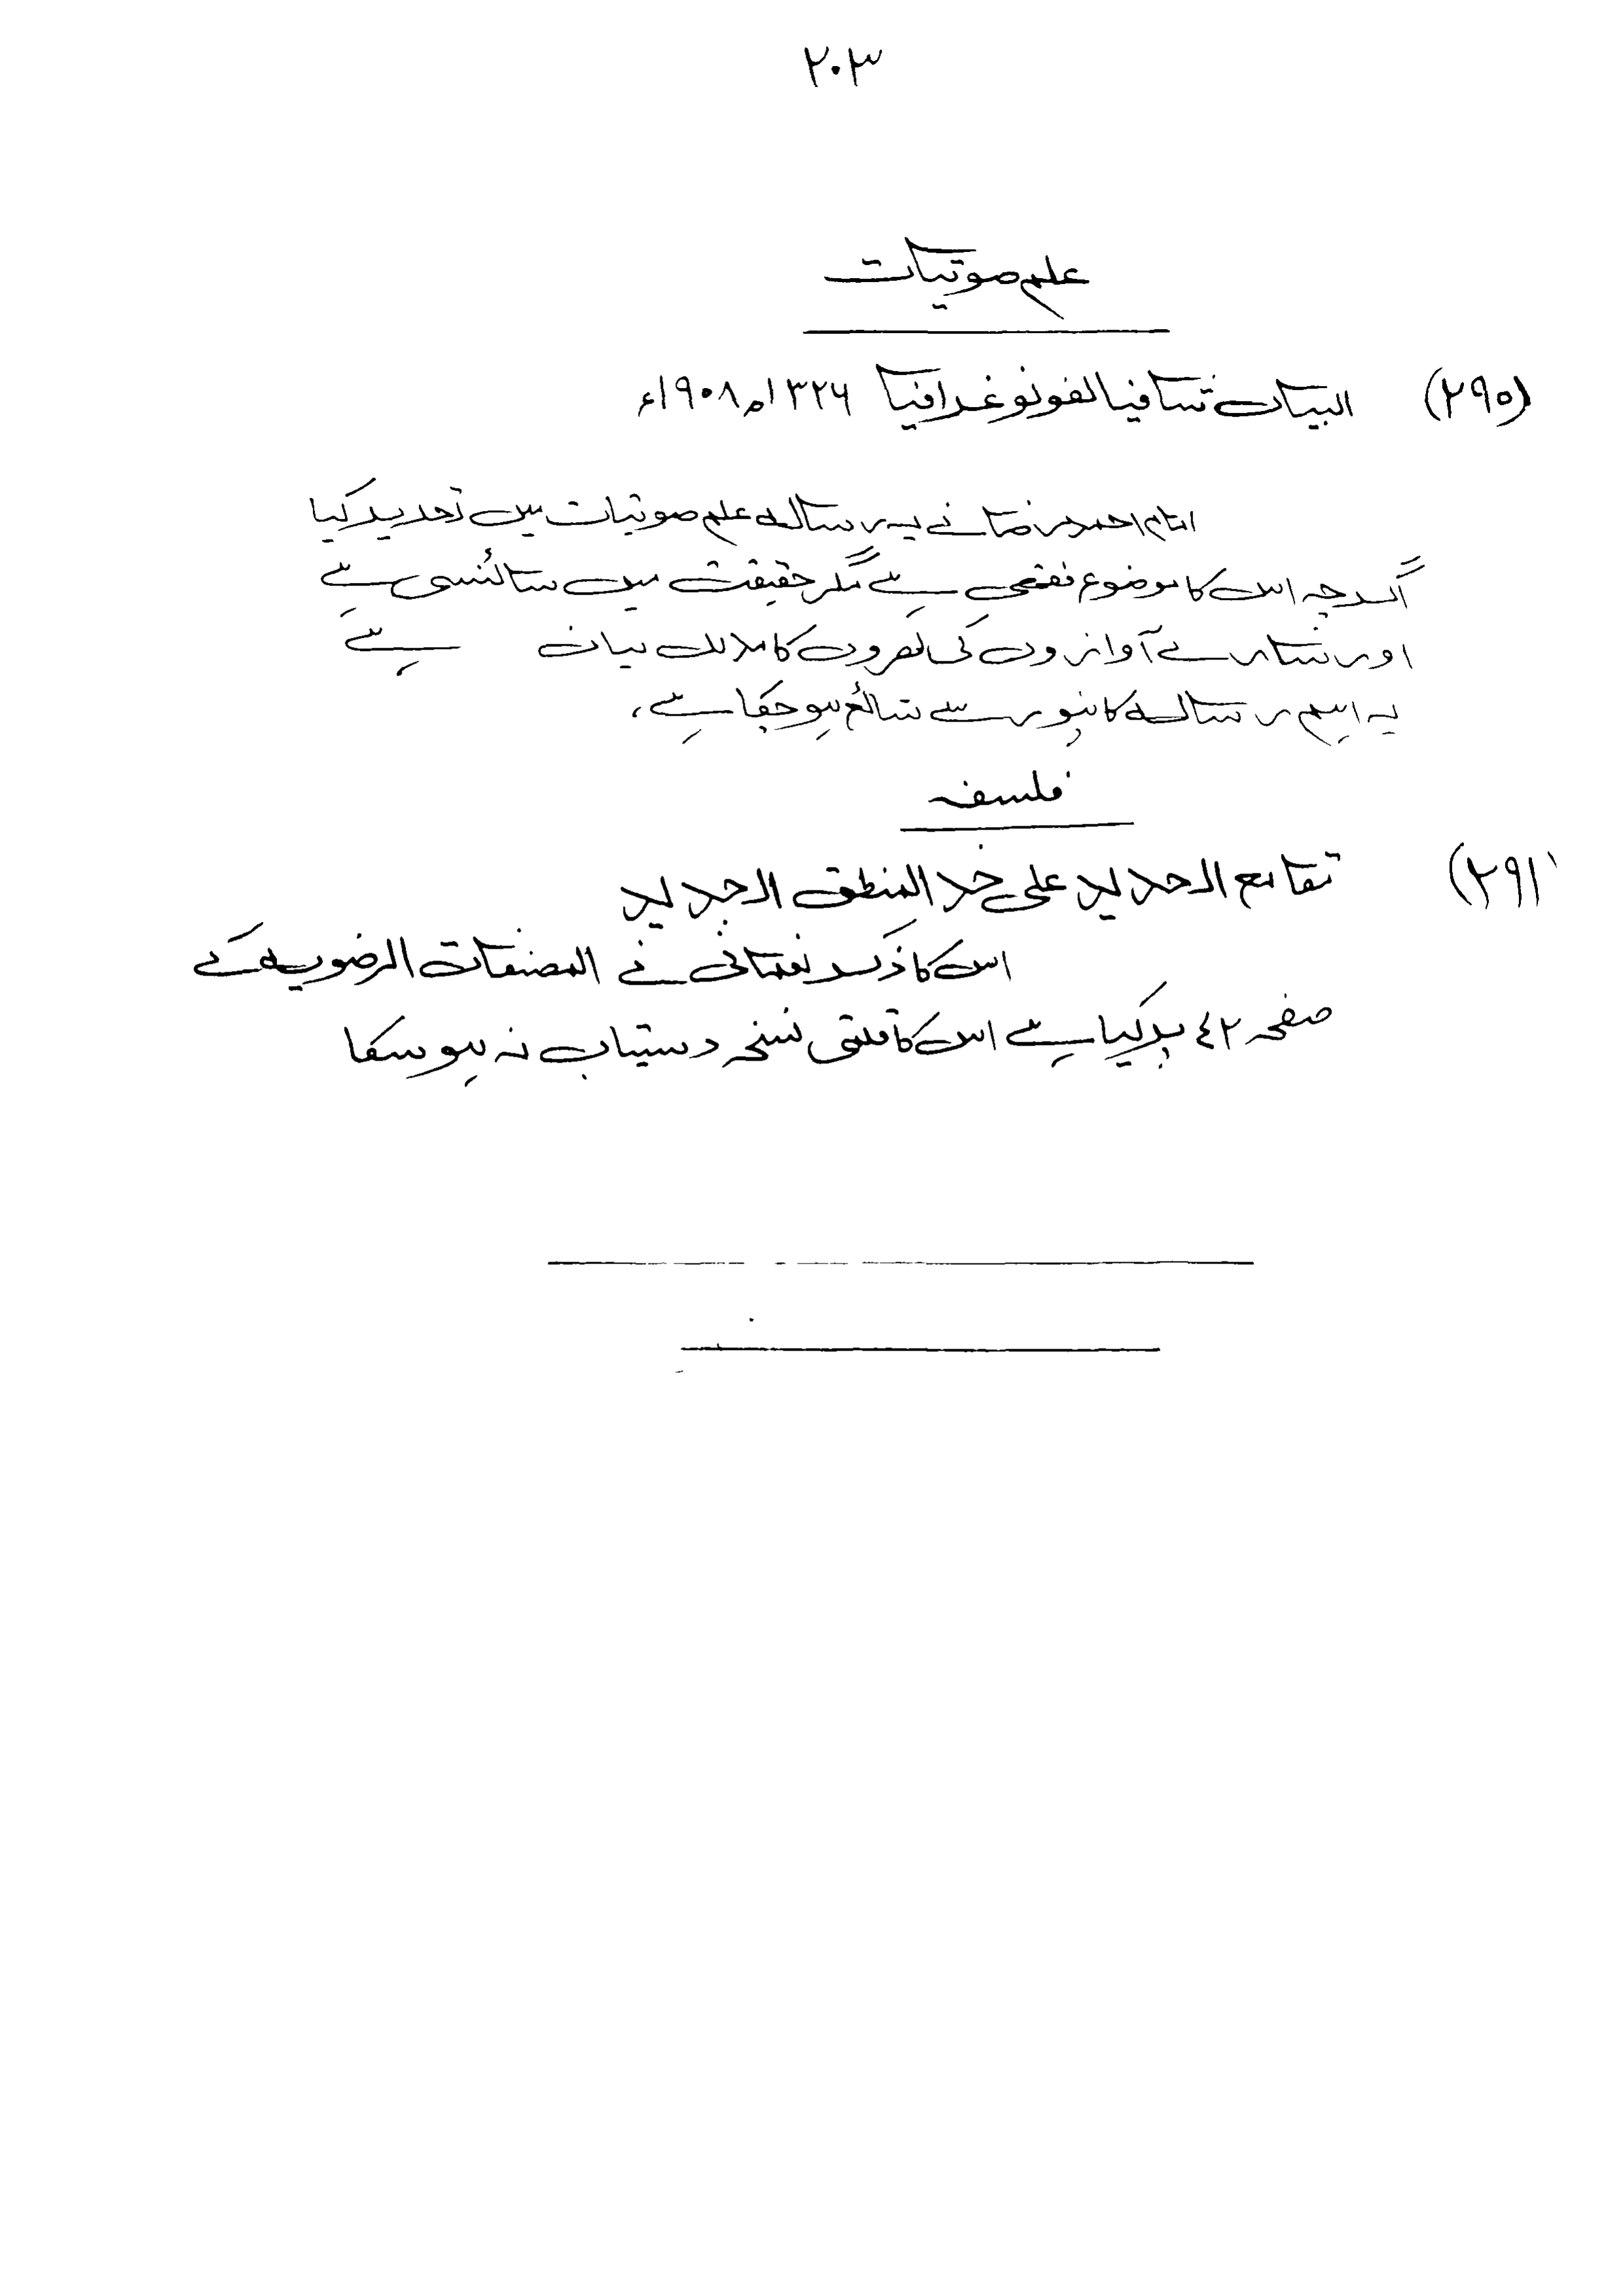 ۲۰۳
علم صوتیات
(۲۹۵) البیان شافیا لفونوغرافیا ۱۳۲۶ھ ۱۹۰۸ء
امام احمد رضا نے یہ رسالہ علم صوتیات میں تحریر کیا
اگرچہ اس کا موضوع فقہی ہے مگر حقیقت میں سائنسی ہے
اور سارے آوازوں کی لہروں کا مدلل بیان ہے
یہ اہم رسالہ کانپور سے شائع ہو چکا ہے،
فلسفہ
(۲۹۱ مقامع الحدید علی خد المنطق الجدید
اس کا ذکر نعمانی نے المصنفات الرضویہ کے
صفحہ ۴۲ پر کیا ہے اس کا قلمی نسخہ دستیاب نہ ہو سکا